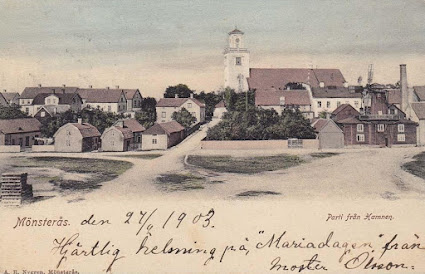 Mönsterås. den 24/2 1903. Parti från Hamnen.
Härtlig helsning på, "Mariadagen", från
moster Olsson.
A. R. Nyzen, Mönsterås.